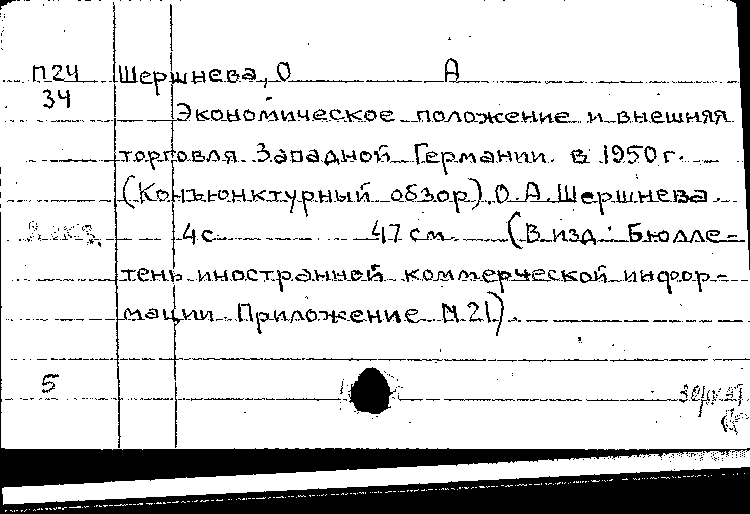 П24 Шершнева, О А
34
Экономическое положение и внешняя
торговля Западной Германии в 1950 г.
(Конъюнктурный обзор). О. А. Шершнева.
2 экз. 4 с. 47 см. (В изд.: Бюлле-
тень иностранной коммерческой инфор-
мации. Приложение N 21).
5